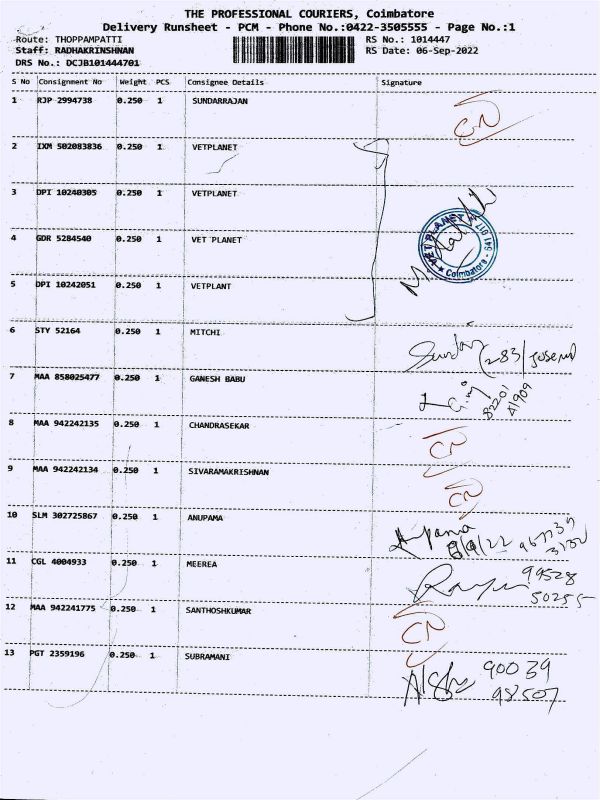 THE PROFESSIONAL COURIERS, Coimbatore
Delivery Runsheet - PCM - Phone No.:0422-3505555 - Page No.:1
Route: THOPPAMPATTI
RS No.: 1014447
Staff: RADHAKRINSHNAN
RS Date: 06-Sep-2022
DRS No.: DCJB101444701
S No Consignment No Weight PCS Consignee Details Signature
1 RJP 2994738 0.250 1 SUNDARRAJAN
CN
2 IXM 502083836 0.250 1 VETPLANET
3 DPI 10240305 0.250 1 VETPLANET
4 GDR 5284540 0.250 1 VET PLANET
VET PLANET
Coimbatore
5 DPI 10242051 0.250 1 VETPLANT
6 STY 52164 0.250 1 MITCHI
7 MAA 858025477 0.250 1 GANESH BABU
82201
41909
8 MAA 942242135 0.250 1 CHANDRASEKAR
CN
9 MAA 942242134 0.250 1 SIVARAMAKRISHNAN
CN
10 SLM 302725867 0.250 1 ANUPAMA
11 CGL 4004933 0.250 1 MEEREA
99528
50255
12 MAA 942241775 0.250 1 SANTHOSHKUMAR
CN
13 PGT 2359196 0.250 1 SUBRAMANI
90039
98507